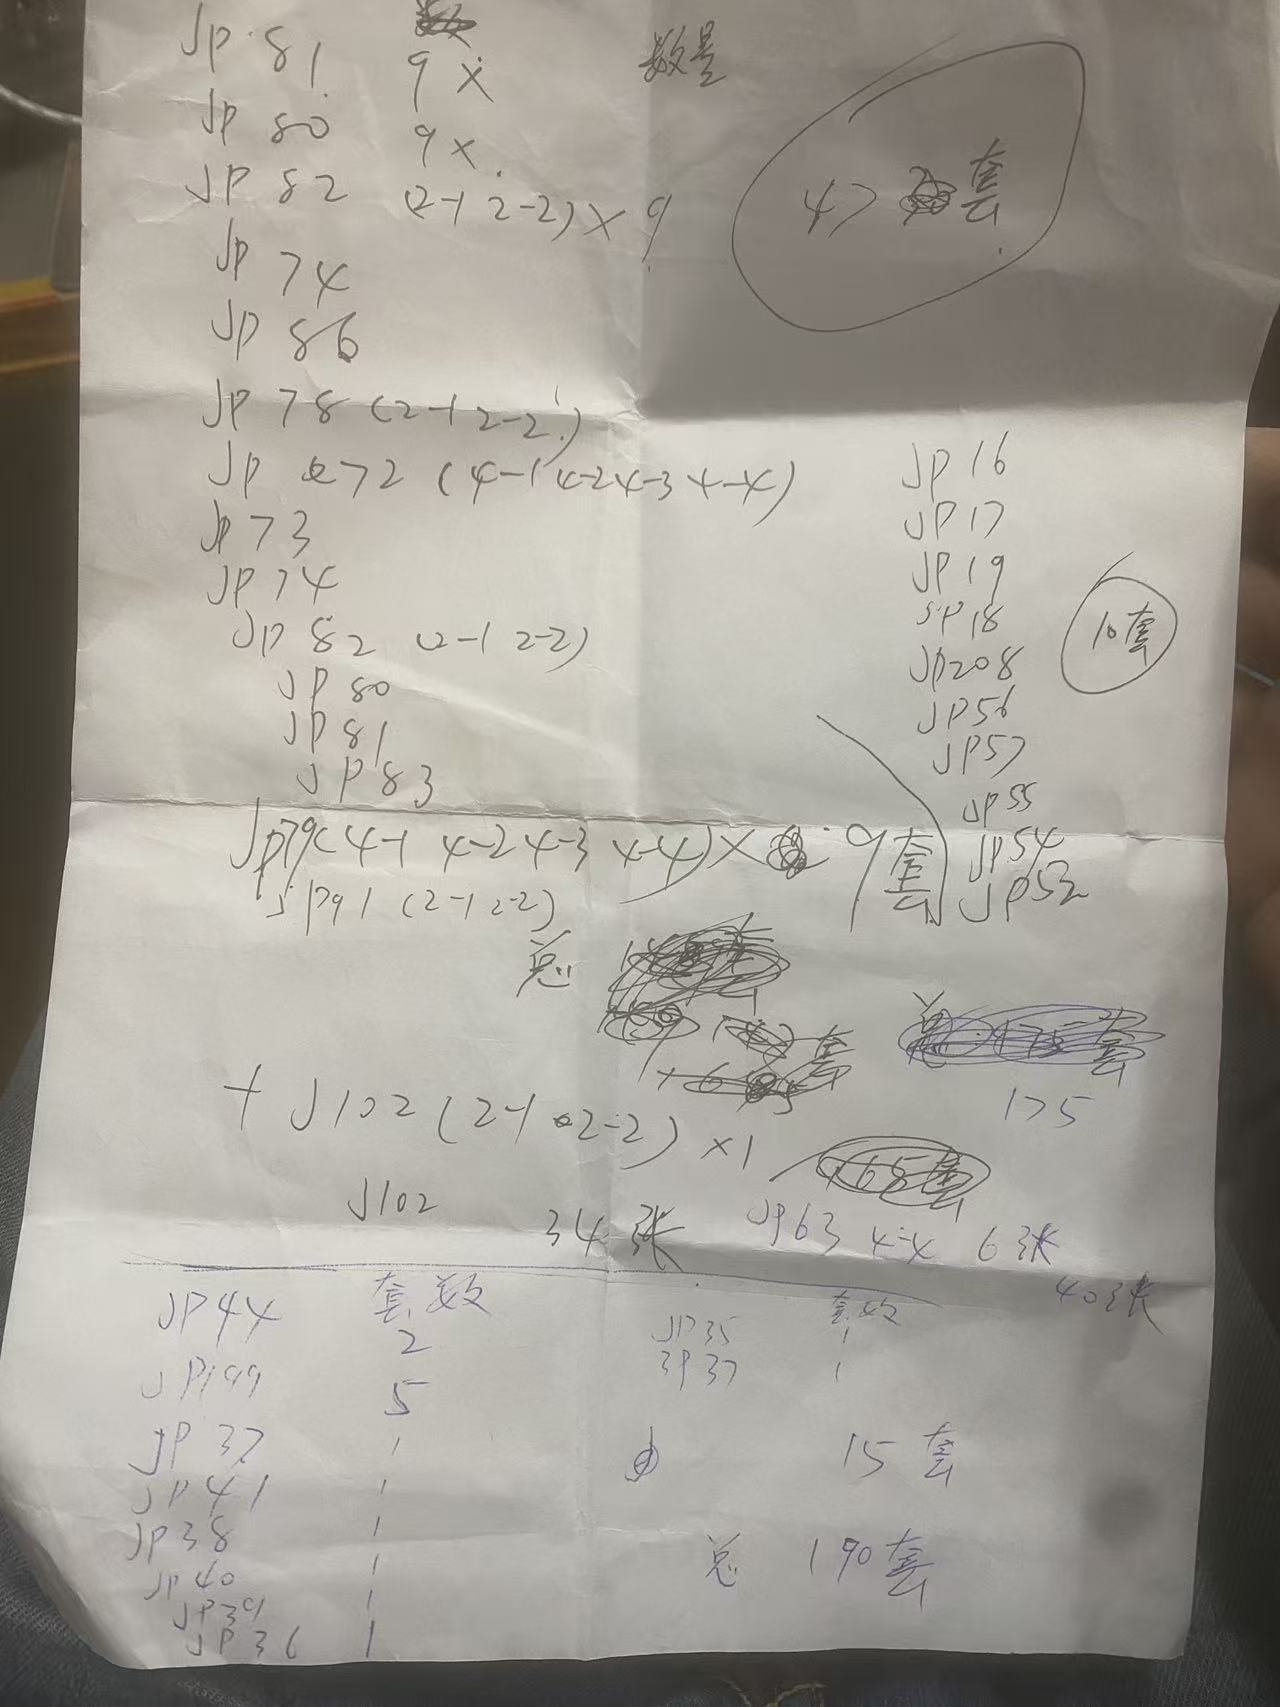 JP 81 9 × 数量
JP 80 9 ×
JP 82 (2-1 2-2) × 9
47 套
JP 74
JP 86
JP 78 (2-1 2-2)
JP 72 (4-1 4-2 4-3 4-4)
JP 73
JP 74
JP 82 (2-1 2-2)
JP 80
JP 81
JP 83
JP79(4-1 4-2 4-3 4-4) × 9套
JP91 (2-1 2-2)
JP 16
JP 17
JP 19
JP 18
JP208
JP56
JP57
JP55
JP54
JP53
10套
总
175
+ J102 (2-1 2-2) ×1
J102 34张 JP63 4-4 6张
40张
JP44 套数 2
JP199 5
JP 37 1
JP 41 1
JP38 1
JP 40 1
JP39 1
JP 36 1
套数
JP35 1
JP37 1
15 套
总 190套